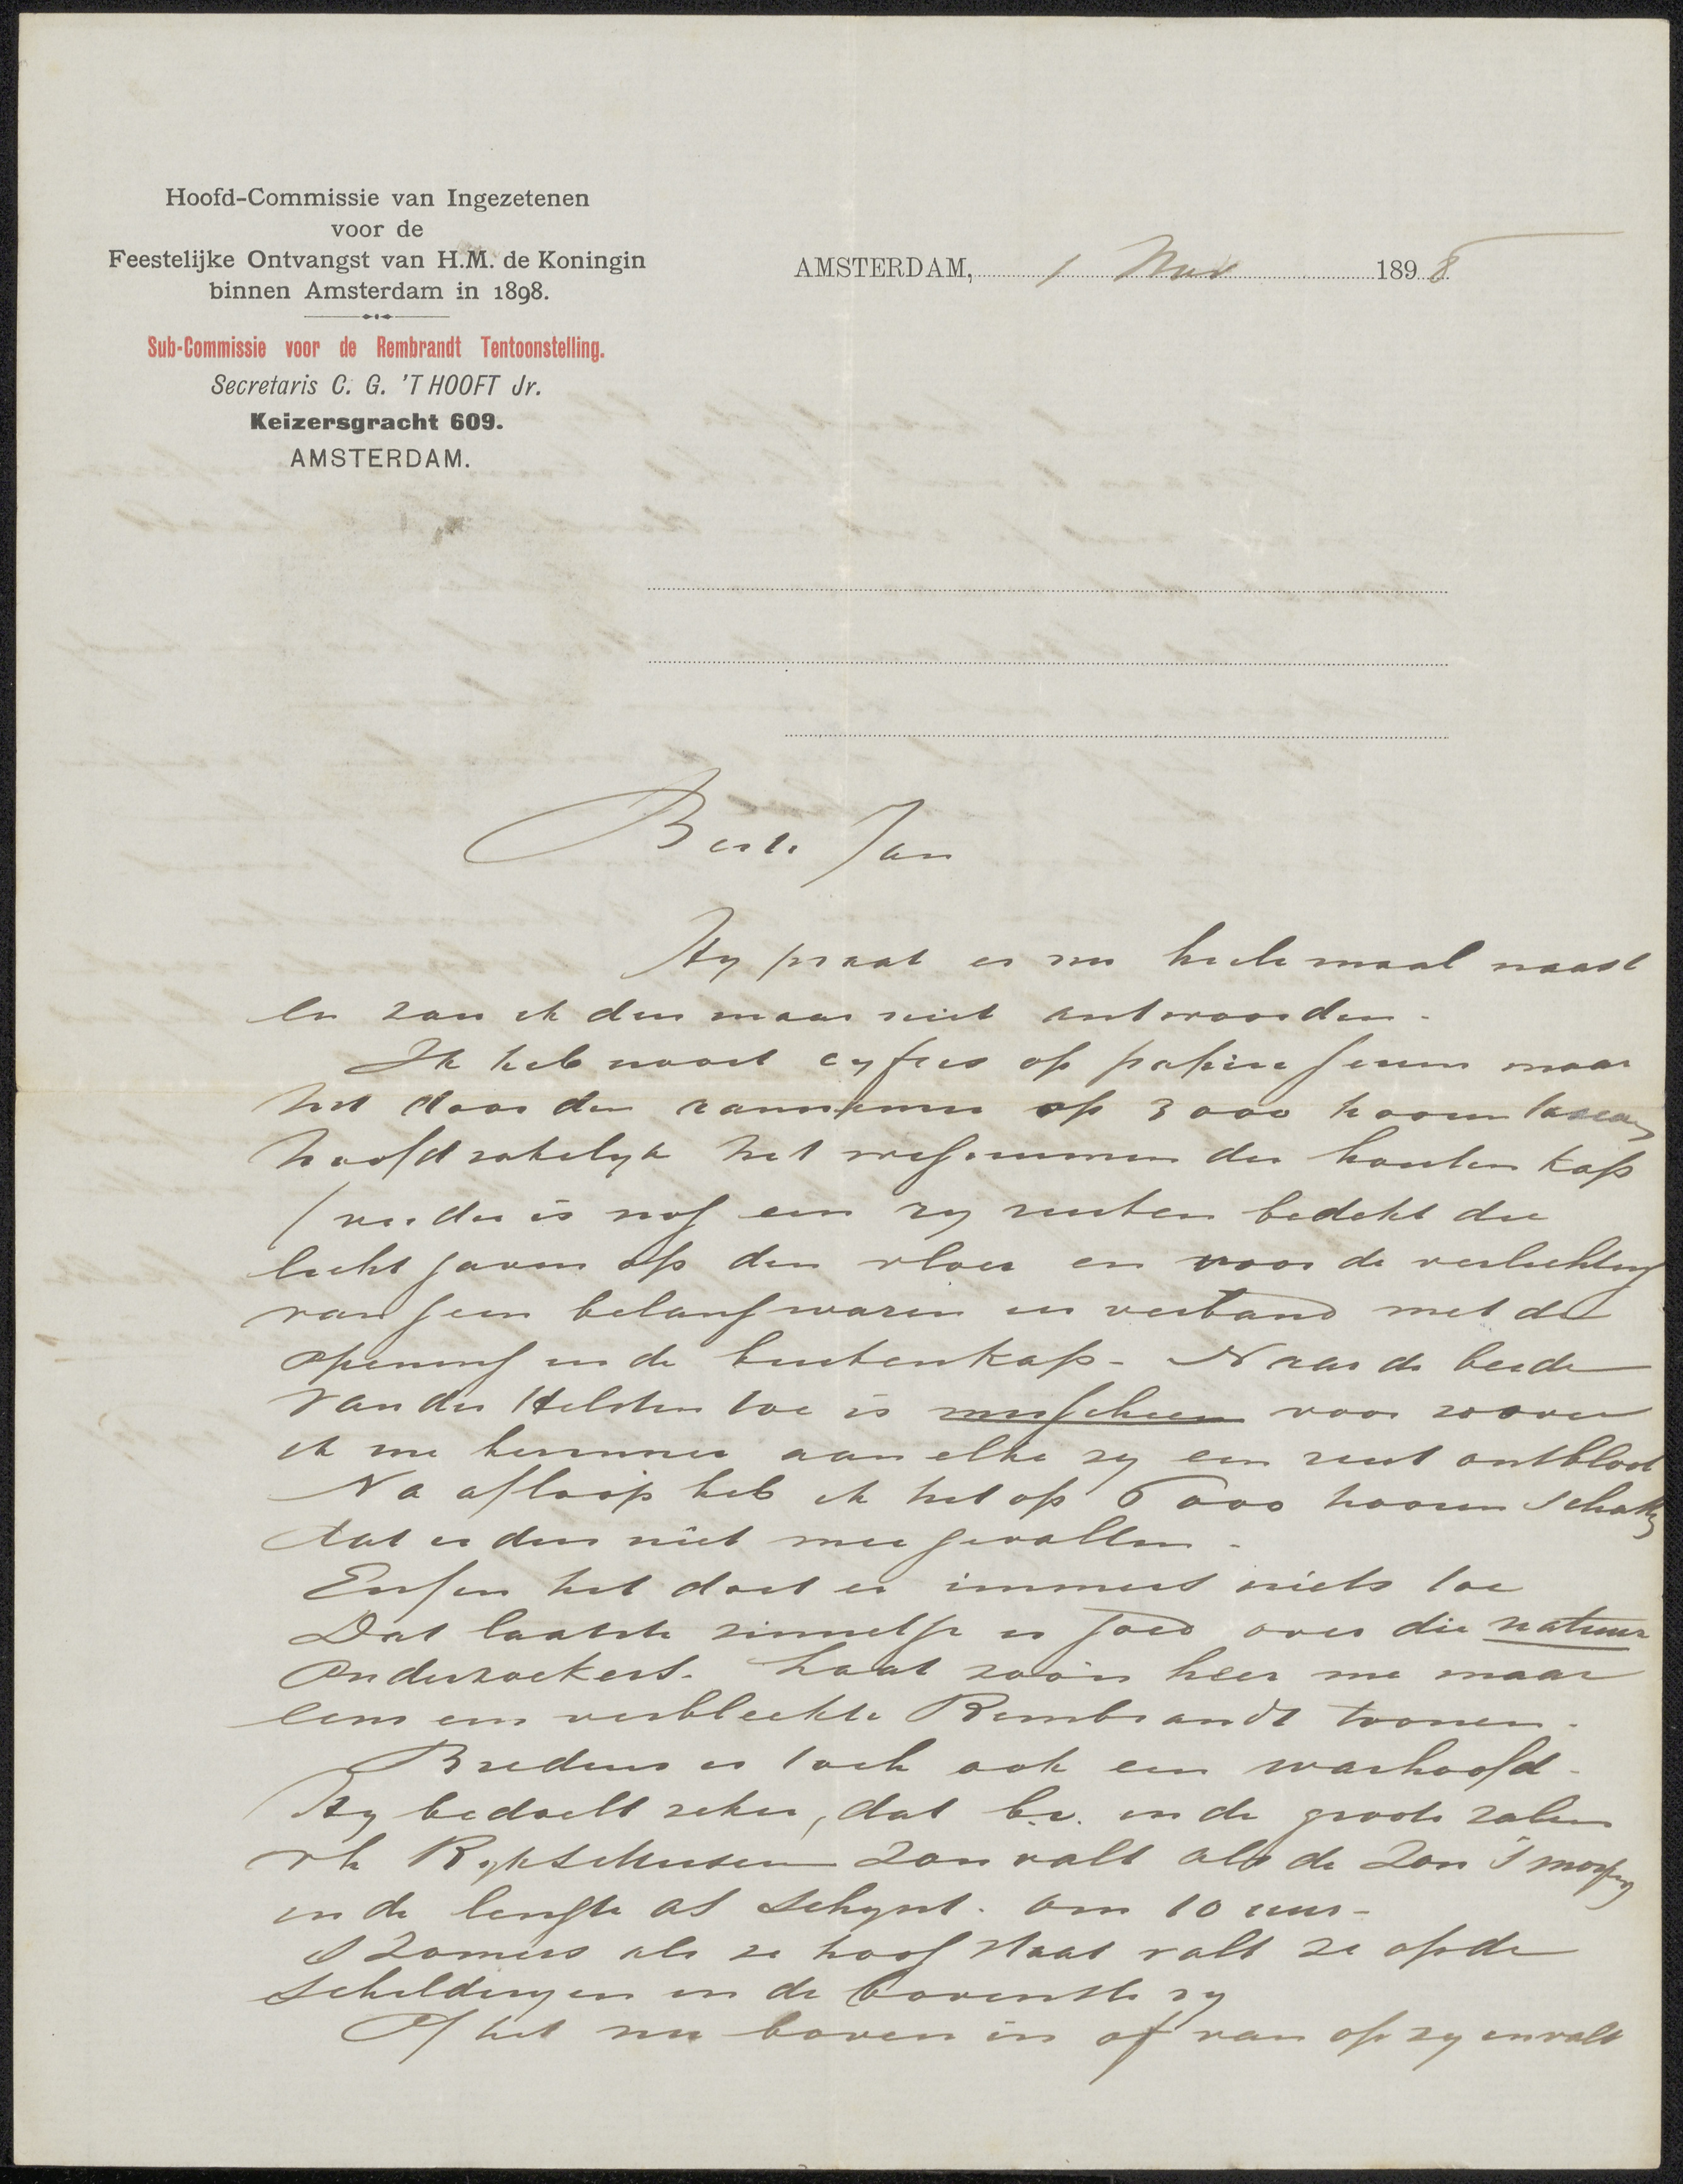 Hoofd-Commissie van Ingezetenen
voor de
Feestelijke Ontvangst van H.M. de Koningin
binnen Amsterdam in 1898.
Sub-Commissie voor de Rembrandt Tentoonstelling.
Secretaris C. G. 'T HOOFT Jr.
Keizersgracht 609.
AMSTERDAM.
AMSTERDAM, 1 Nov 1898
Beste Jan
Hy praat er nu heelemaal naast
en zou ik dus maar niet antwoorden.
Ik heb nooit cyfers op papier gezien maar
het door den aannemer op 3000 hooren taxeeren
hoofdzakelyk het wegnemen der houten kap
(verder is nog een ry ruiten bedekt die
licht gaven op den vloer en voor de verlichting
van geen belang waren in verband met de
opening in de buitenkap - Naar de beide
van der Helsten toe is misschien voor zoover
ik me herinner aan elke zy een ruit ontbloot
Na afloop heb ik het op 6000 hooren schatten
dat is dus niet meegevallen.
Enfin het doet er immers niets toe
Dat laatste zinnetje is goed over die natuur
onderzoekers. Laat zoo'n heer me maar
eens een verbleekte Rembrandt toonen.
Bredius is toch ook een warhoofd.
Hy bedoelt zeker, dat b.v. in de groote zalen
vh Ryksmuseum zon valt als de zon 's morgens
in de lengte as schynt. om 10 uur -
's Zomers als ze hoog staat valt ze op de
schilderyen in de bovenste ry
Of het nu boven in of van op zy invalt